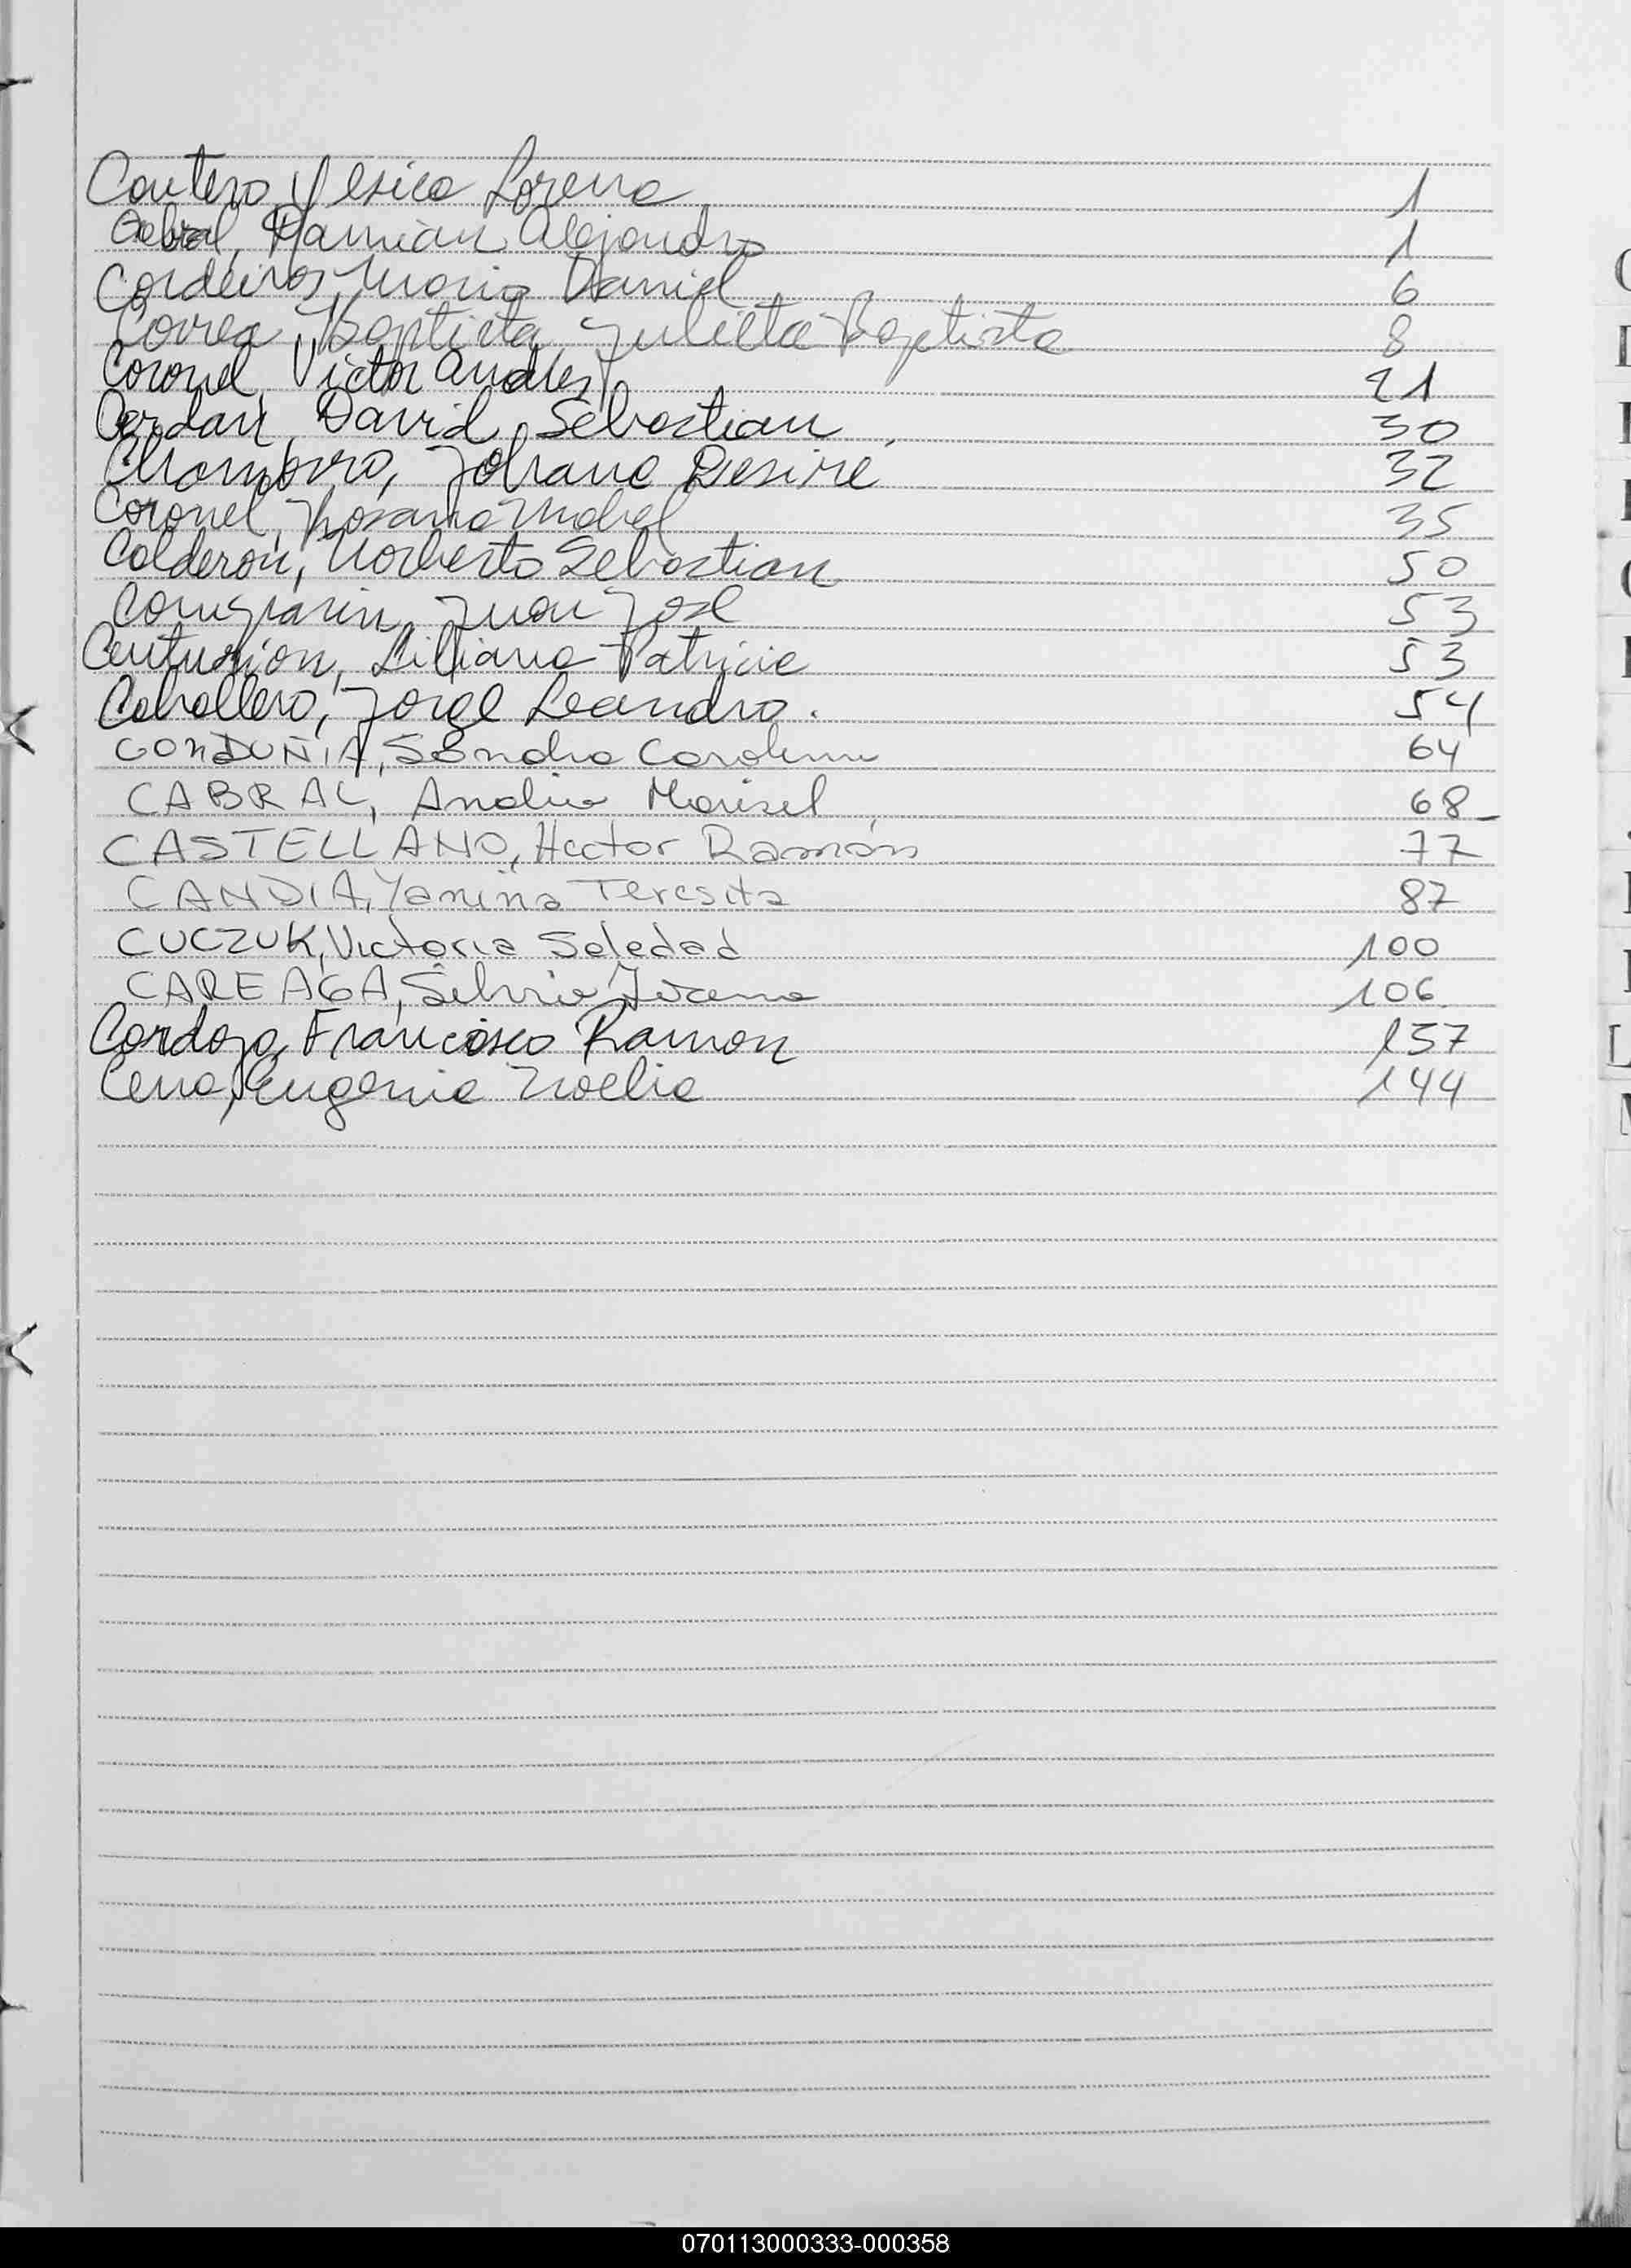 Cantero, Yesica Lorena 1
Cabral, Damián Alejandro 1
Cordeiros, Mario Daniel 6
Correa Baptista, Julieta Baptista 8
Coronel, Victor Andres 21
Cardan, David Sebastian 30
Chamorro, Johana Desiré 32
Coronel, Rosana Mabel 35
Calderón, Norberto Sebastian 50
Juan José 53
Centurion, Liliana Patricia 53
Caballero, Jorge Leandro. 54
CONDUÑIA, Sandra Carolina 64
CABRAL, Analia Marisel 68
CASTELLANO, Hector Ramón 77
CANDIA, Yamina Teresita 87
CUCZUK, Victoria Soledad 100
CAREAGA, Silvia Ivana 106
Cardozo, Francisco Ramon 137
Cena, Eugenia Noelia 144
070113000333-000358